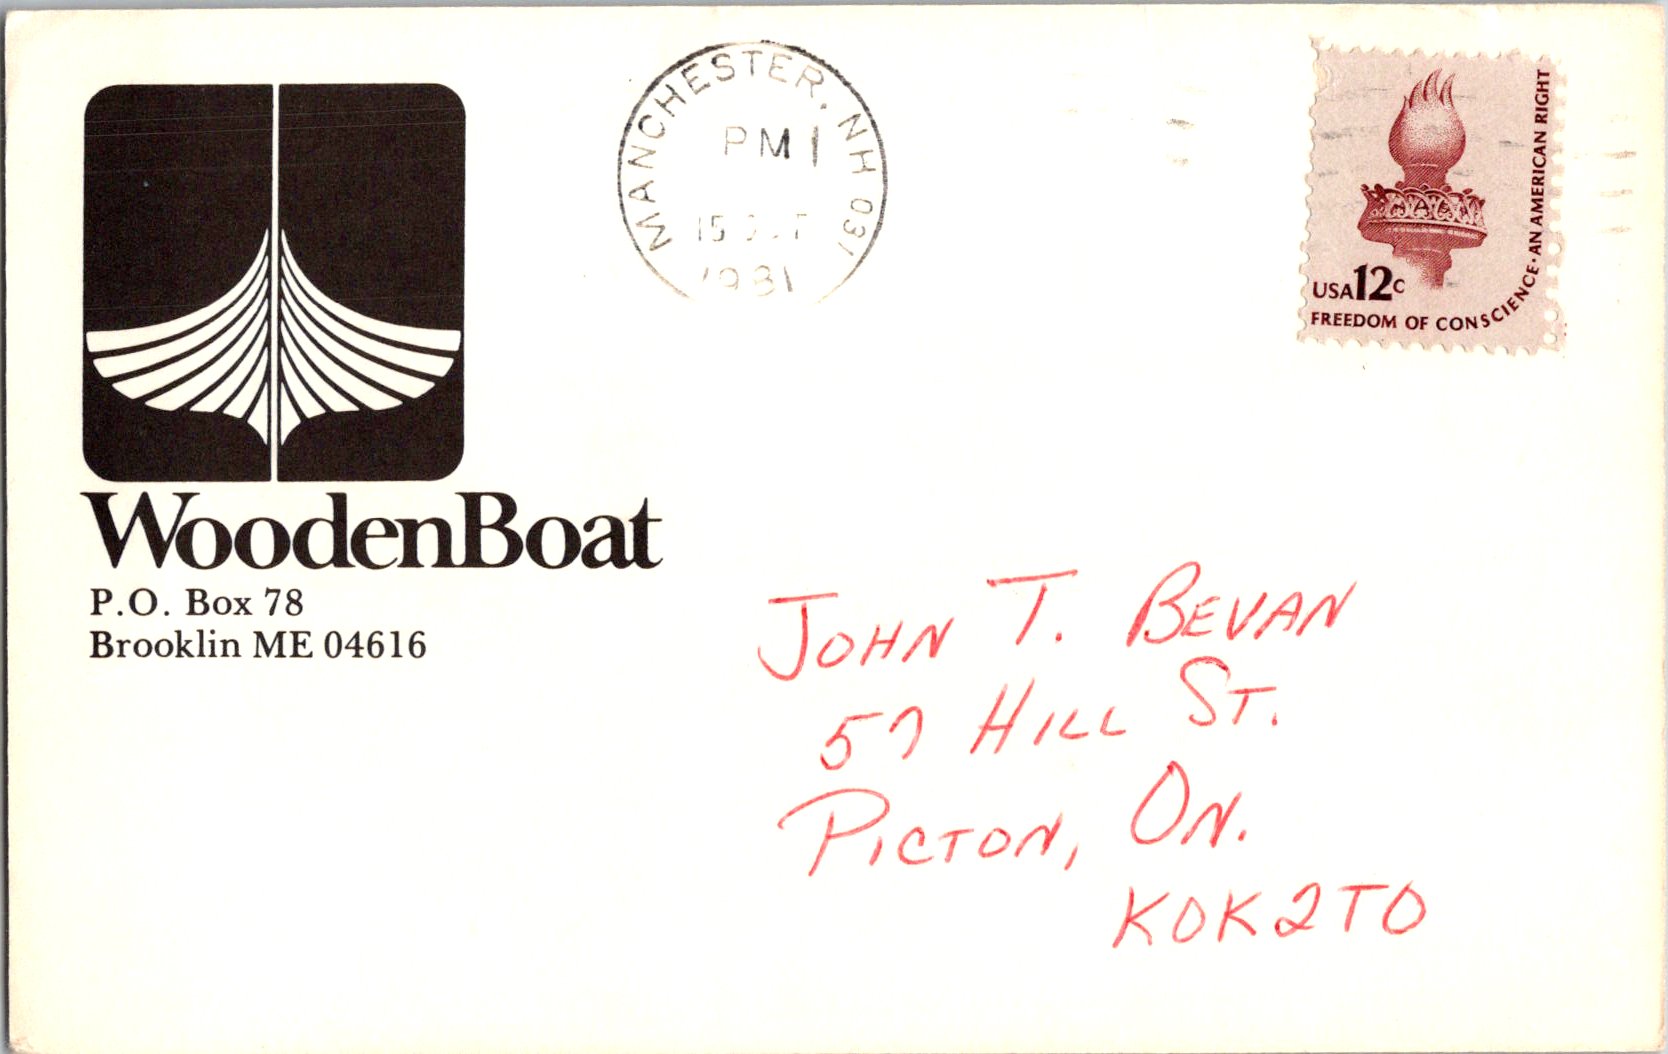 WoodenBoat
P.O. Box 78
Brooklin ME 04616
MANCHESTER, NH 031
PM 1
15 OCT
1981
USA 12c
FREEDOM OF CONSCIENCE · AN AMERICAN RIGHT
JOHN T. BEVAN
57 HILL ST.
PICTON, ON.
K0K2T0